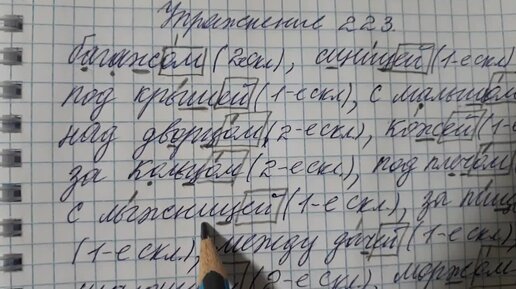 Упражнение 223.
багажом (2скл), синицей (1-е скл)
под крышей (1-е скл), с малышом
над дворцом, 2-е скл), кожей (1-е
за кольцом (2-е скл), под плющом
с лыжницей (1-е скл), за
(1-е скл), между дачей (1-е скл),
(2-е скл), моржом